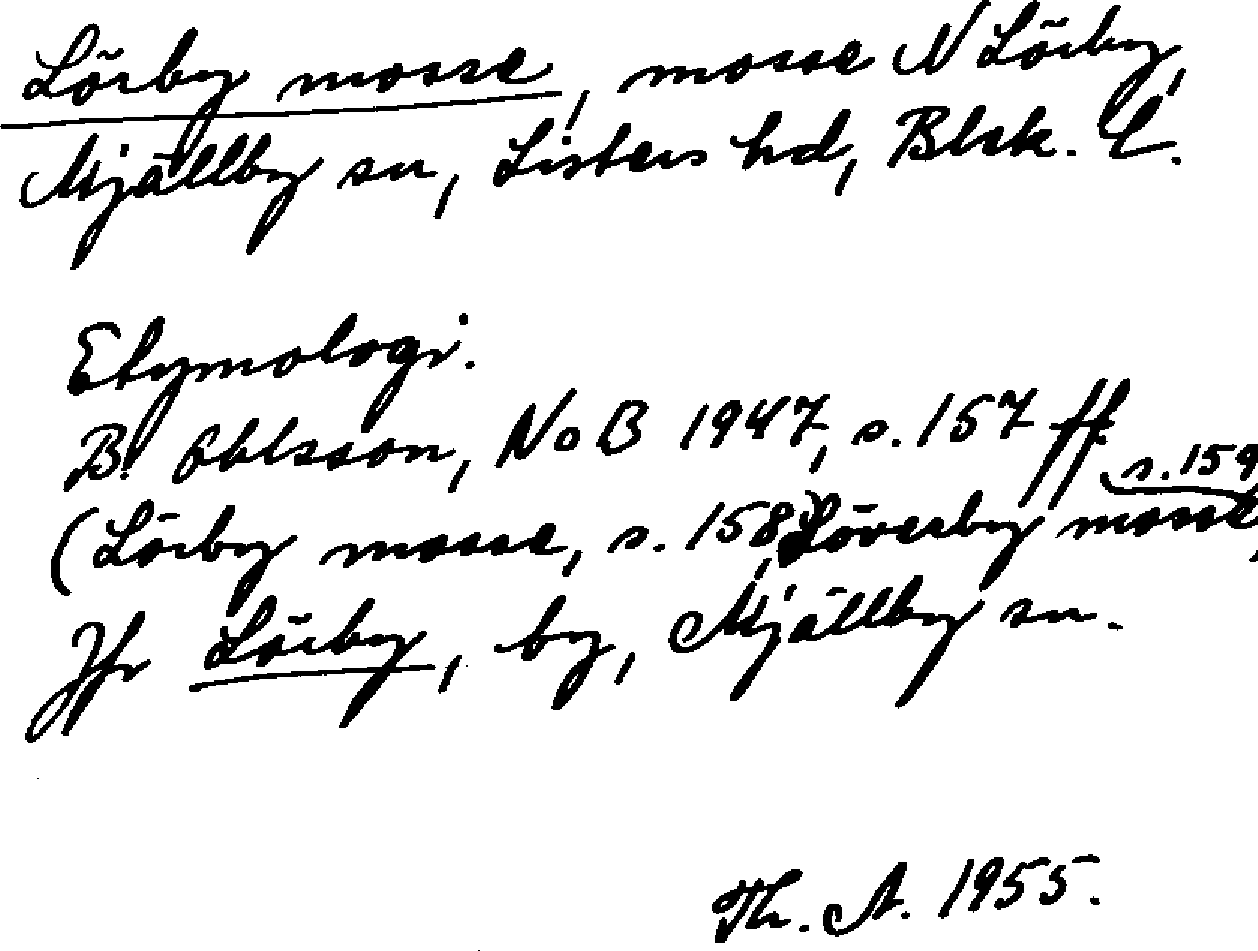 Lörby mosse, mosse N Lörby,
Mjällby sn, Listers hd, Blek. l.
Etymologi.
B. Ohlsson, NoB 1947, s. 157 ff.
s. 159
(Lörby mosse, s. 158, Löverby mosse,
Jfr Lörby, by, Mjällby sn.
Th. A. 1955.